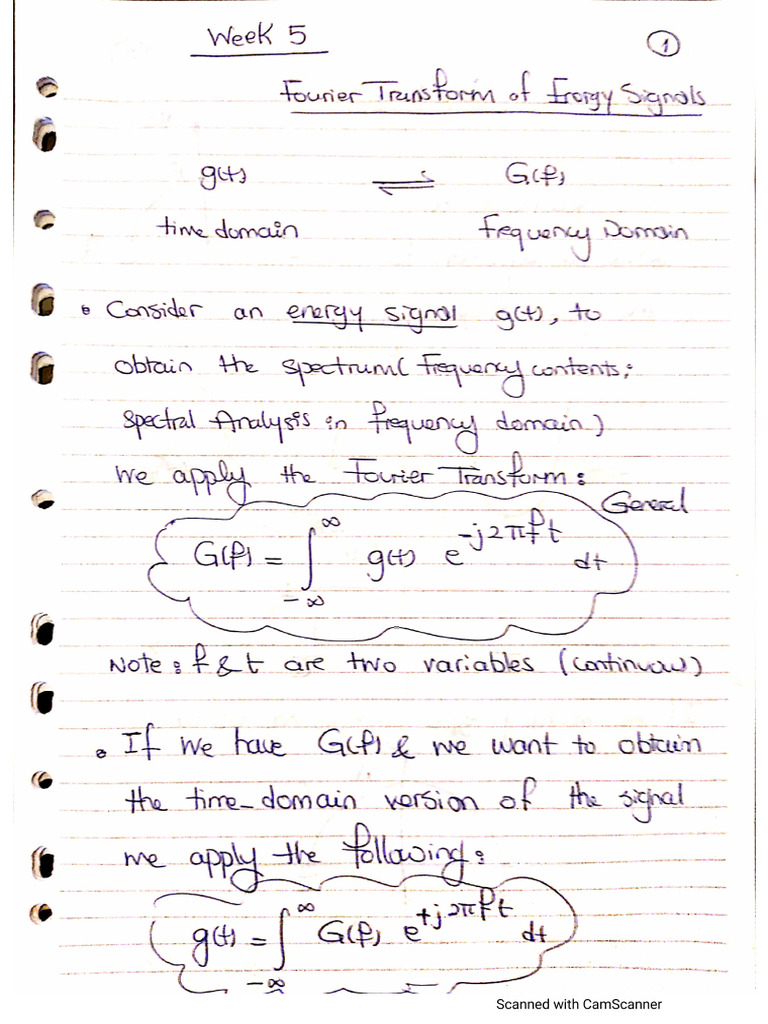 Week 5
1
Fourier Transform of Energy Signals
g(t) ⇌ G(f)
time domain Frequency Domain
• Consider an energy signal g(t), to
obtain the spectrum (Frequency contents;
Spectral Analysis in frequency domain)
we apply the Fourier Transform:
General
G(f) = ∫_{-∞}^{∞} g(t) e^{-j2πft} dt
Note: f & t are two variables (continuous)
• If we have G(f) & we want to obtain
the time-domain version of the signal
we apply the following:
g(t) = ∫_{-∞}^{∞} G(f) e^{+j2πft} dt
Scanned with CamScanner